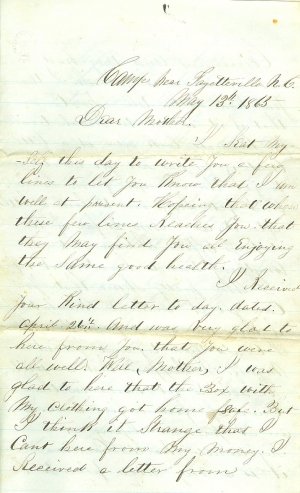 Camp near Fayetteville N.C.
May 13th 1865
Dear Mother.
I Seat My
-Self this day to write You a few
lines to let You Know that I am
well at present. Hopeing that when
these few lines Reaches You. that
they May find You all Enjoying
the Same good health.
I Received
Your Kind letter to day. dated.
April 26th And was very glad to
here from You. that You were
all well. Well, Mother, I was
glad to here that the Box with
My Clothing got home Safe. But
I think it Strange that I
Cant here from My Money. I
Received a letter from